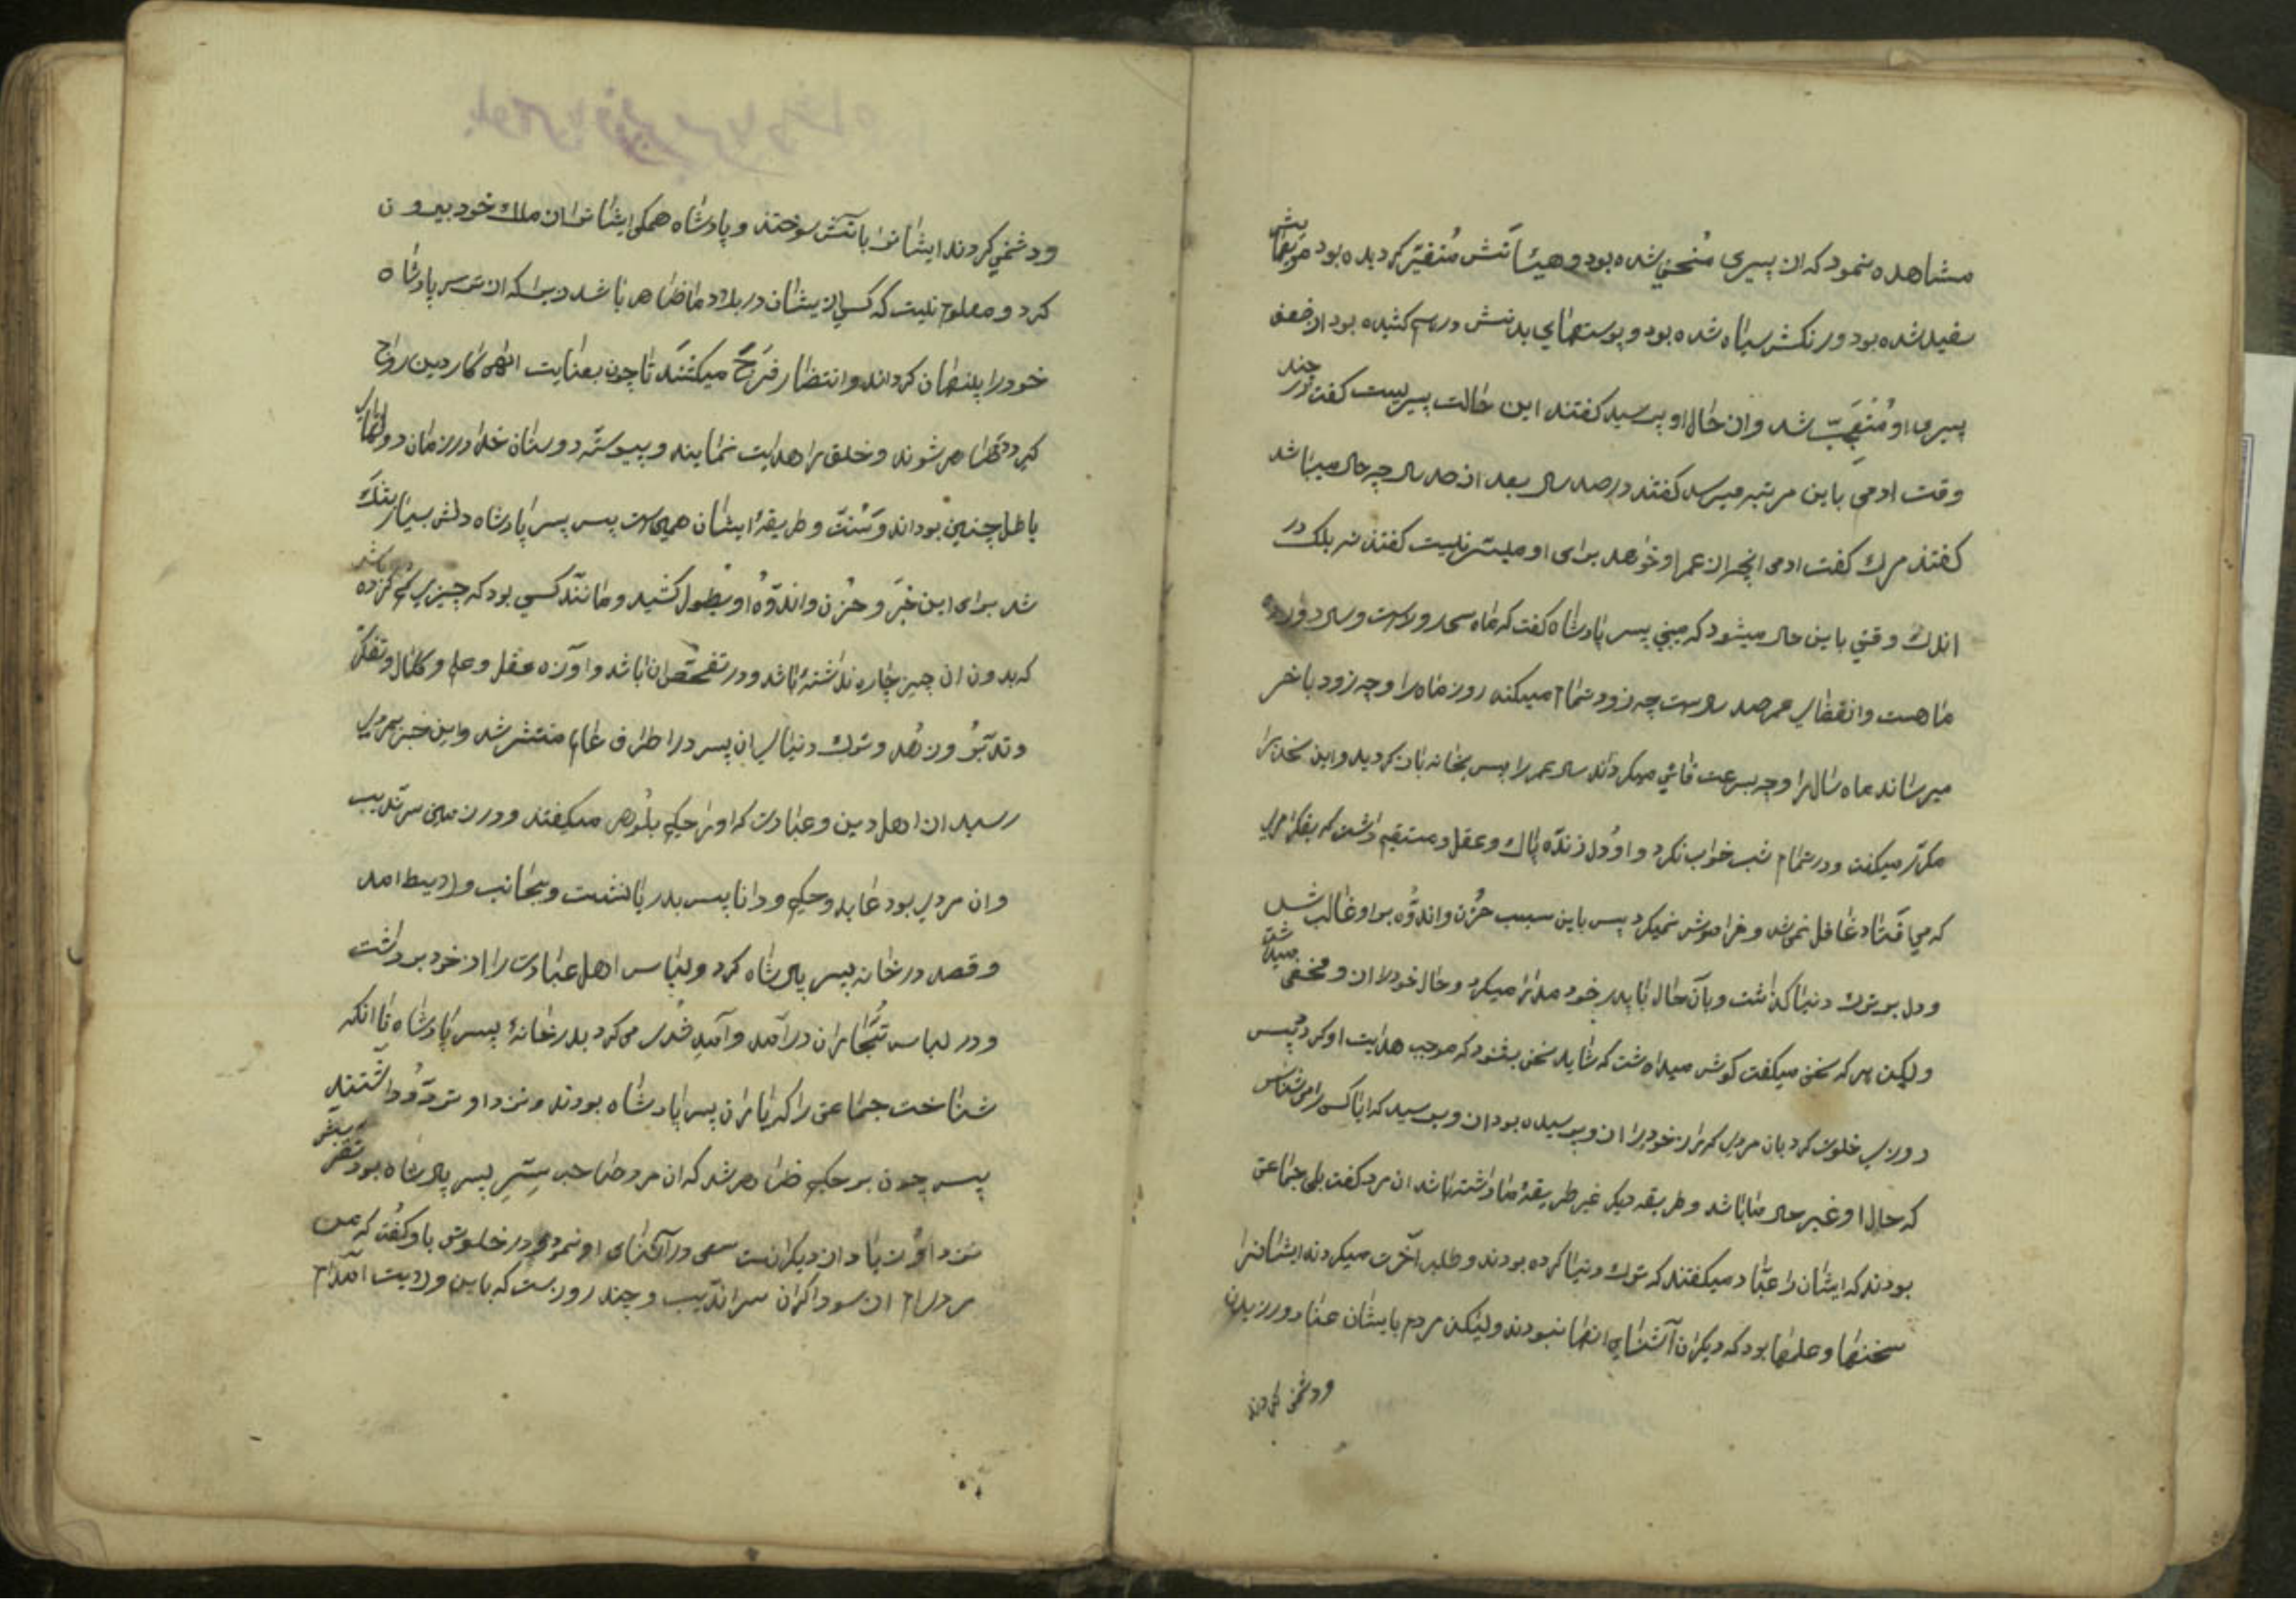 مشاهده نمود که از پیری مُنحنی شده بود و هیئاتش مُتغیّر کردیده بود مویهایش
سفید شده بود و رنکش سیاه شده بود و پوستهای بدنش درهم کشیده بود از ضعف
پیری او مُتعَجِّب شد و از حال او پرسید کفتند این حالت پیریست کفت در چند
وقت ادمی باین مرتبه میرسد کفتند در صد سال بعد از صد سال چه حال میباشد
کفتند مرك کفت ادمی انچه از عمر او خواهد برای او میسّر نیست کفتند نه بلکه در
اندك وقتی باین حال میشود که میبینی پسر پادشاه کفت که ماه سی روز است و سال دوازده
ماهست وانقضای عمر صد سالست چه زود تمام میکند روز ماه را و چه زود باخر
میرساند ماه سال را و چه بسرعت فانی میکرداند سال عمر را پس بخانه باز کردید و این سخن را
مکرّر میکفت و در تمام شب خواب نکرد و او دل زندهٔ پاك و عقل مستقیم داشت که بفکر امری
که می افتاد غافل نمی شد و فراموش نمیکرد پس باین سبب حُزن واندُوه بر او غالب شد
و دل بر ترك دنیا کذاشت و بآن حال با پدر خود مدارا میکرد و حال خود را از او مخفی میداشت
ولیکن هر که سخن میکفت کوش میداشت که شاید سخنی بشنود که موجب هدایت او کردد پس
روزی خلوت کرد بان مردی که راز خود را از او پرسیده بود از او پرسید که ایا کسی را می شناسی
که حال او غیر حال ما باشد و طریقه دیکر غیر طریقهٔ ما داشته باشد ان مرد کفت بلی جماعتی
بودند که ایشان را عبّاد میکفتند که ترك دنیا کرده بودند و طلب آخرت میکردند ایشانرا
سخنها و علمها بود که دیکران آشنای انها نبودند ولیکن مردم بایشان عناد ورزیدند
ودشمنی کردند
ودشمنی کردند ایشانرا باتش سوختند و پادشاه همکی ایشانرا از ملك خود بیرون
کرد و معلوم نیست که کسی از ایشان در بلاد ما ظاهر باشد زیرا که از ترس پادشاه
خود را پنهان کرده اند و انتظار فَرَج میکشند تا چون بعنایت الهی کار دین رواج
کیرد ظاهر شوند و خلق را هدایت نمایند و پیوسته دوستان خدا در زمان دولتهای
باطل چنین بوده اند و سُنّت و طریقهٔ ایشان همین است پس پسر پادشاه دلش بسیار تنك
شد برای این خبر و حُزن و اندُوه او بطول کشید و مانند کسی بود که چیزی کم کرده باشد
که بدون ان چیز چاره نداشته باشد و در تفحّص ان باشد و اوازه عقل و علم و کمال و تفکّر
و تدبّر و زُهد و ترك دنیای ان پسر در اطراف عالم منتشر شد و این خبر بمردی
رسید از اهل دین و عبادت که او را حکیم بلُوهر میکفتند و در زمین سرندیب
و ان مردی بود عابد و حکیم و دانا پس بدریا نشست و بجانب ولایت امد
و قصد در خانه پسر پادشاه کرد و لباس اهل عبادت را از خود برداشت
و در لباس تُجّاران درامد و آمد شُد می کرد بدر خانهٔ پسر پادشاه تا انکه
شناخت جماعتی را که یاران پسر پادشاه بودند و نزد او تردُّد داشتند
پس چون بر حکیم ظاهر شد که ان مرد صاحب سِرّ پسر پادشاه بود تقرّبش
نزد او زیاد از دیکرانست سعی در آشنای او نمود و در خلوتی باو کفت که من
مردی ام از سوداکران سرندیب و چند روز است که باین ولایت امده ام